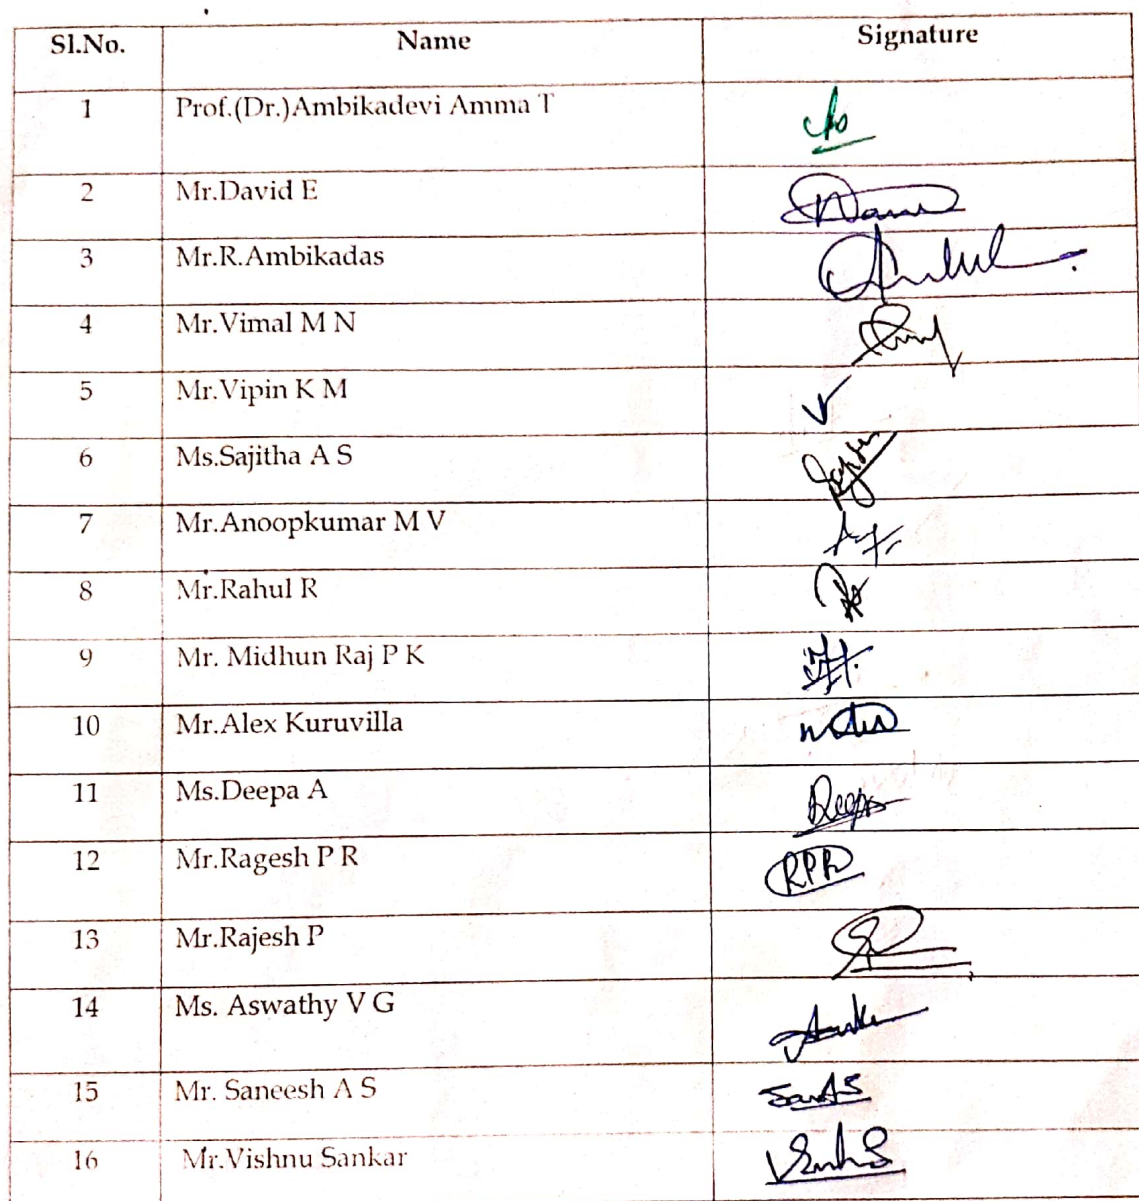 Sl.No. Name Signature
1 Prof.(Dr.)Ambikadevi Amma T
2 Mr.David E
3 Mr.R.Ambikadas
4 Mr.Vimal M N
5 Mr.Vipin K M
6 Ms.Sajitha A S
7 Mr.Anoopkumar M V
8 Mr.Rahul R
9 Mr. Midhun Raj P K
10 Mr.Alex Kuruvilla
11 Ms.Deepa A Deepa
12 Mr.Ragesh P R RPR
13 Mr.Rajesh P
14 Ms. Aswathy V G
15 Mr. Saneesh A S
16 Mr.Vishnu Sankar